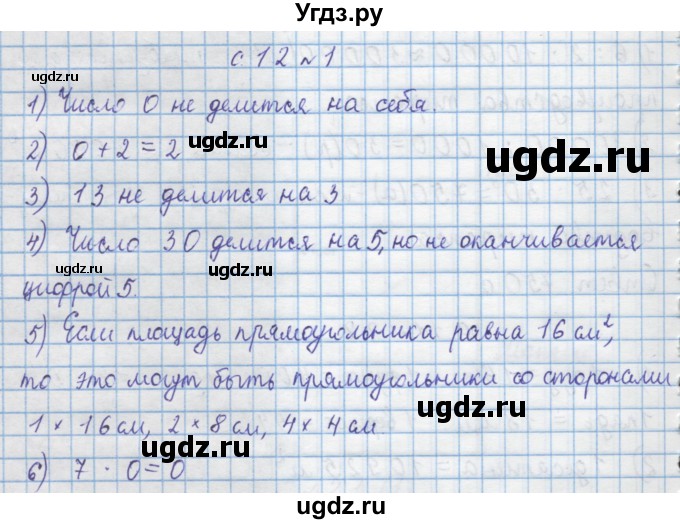 Угдз.ру
с 12 №1
1) Число 0 не делится на себя.
2) 0 + 2 = 2
3) 13 не делится на 3
4) Число 30 делится на 5, но не оканчивается
цифрой 5.
5) Если площадь прямоугольника равна 16 см²,
то это могут быть прямоугольники со сторонами
1 × 16 см, 2 × 8 см, 4 × 4 см
6) 7 · 0 = 0
ugdz.ru
ugdz.ru
ugdz.ru
ugdz.ru
ugdz.ru
ugdz.ru
ugdz.ru
ugdz.ru
ugdz.ru